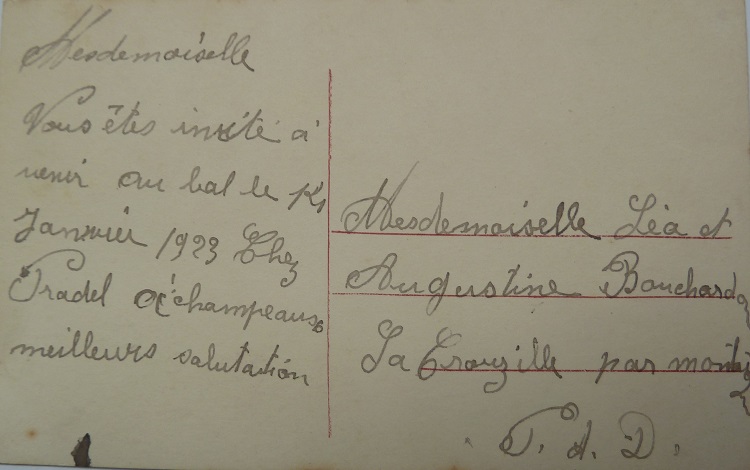 Mesdemoiselle
Vous êtes invité à
venir au bal le
Janvier 1923 Chez
Pradel à champeaux
meilleurs salutation
Mesdemoiselle Léa et
Augustine Bouchardon
La Crouzille par
P. d. D.